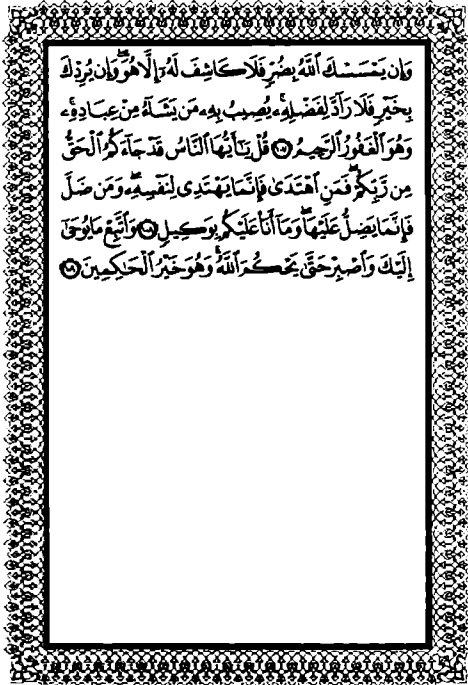 وَإِن يَمْسَسْكَ ٱللَّهُ بِضُرٍّ فَلَا كَاشِفَ لَهُۥٓ إِلَّا هُوَ ۖ وَإِن يُرِدْكَ
بِخَيْرٍ فَلَا رَآدَّ لِفَضْلِهِۦ ۚ يُصِيبُ بِهِۦ مَن يَشَآءُ مِنْ عِبَادِهِۦ ۚ
وَهُوَ ٱلْغَفُورُ ٱلرَّحِيمُ ١٠٧ قُلْ يَـٰٓأَيُّهَا ٱلنَّاسُ قَدْ جَآءَكُمُ ٱلْحَقُّ
مِن رَّبِّكُمْ ۖ فَمَنِ ٱهْتَدَىٰ فَإِنَّمَا يَهْتَدِى لِنَفْسِهِۦ ۖ وَمَن ضَلَّ
فَإِنَّمَا يَضِلُّ عَلَيْهَا ۖ وَمَآ أَنَا۠ عَلَيْكُم بِوَكِيلٍ ١٠٨ وَٱتَّبِعْ مَا يُوحَىٰٓ
إِلَيْكَ وَٱصْبِرْ حَتَّىٰ يَحْكُمَ ٱللَّهُ ۚ وَهُوَ خَيْرُ ٱلْحَـٰكِمِينَ ١٠٩